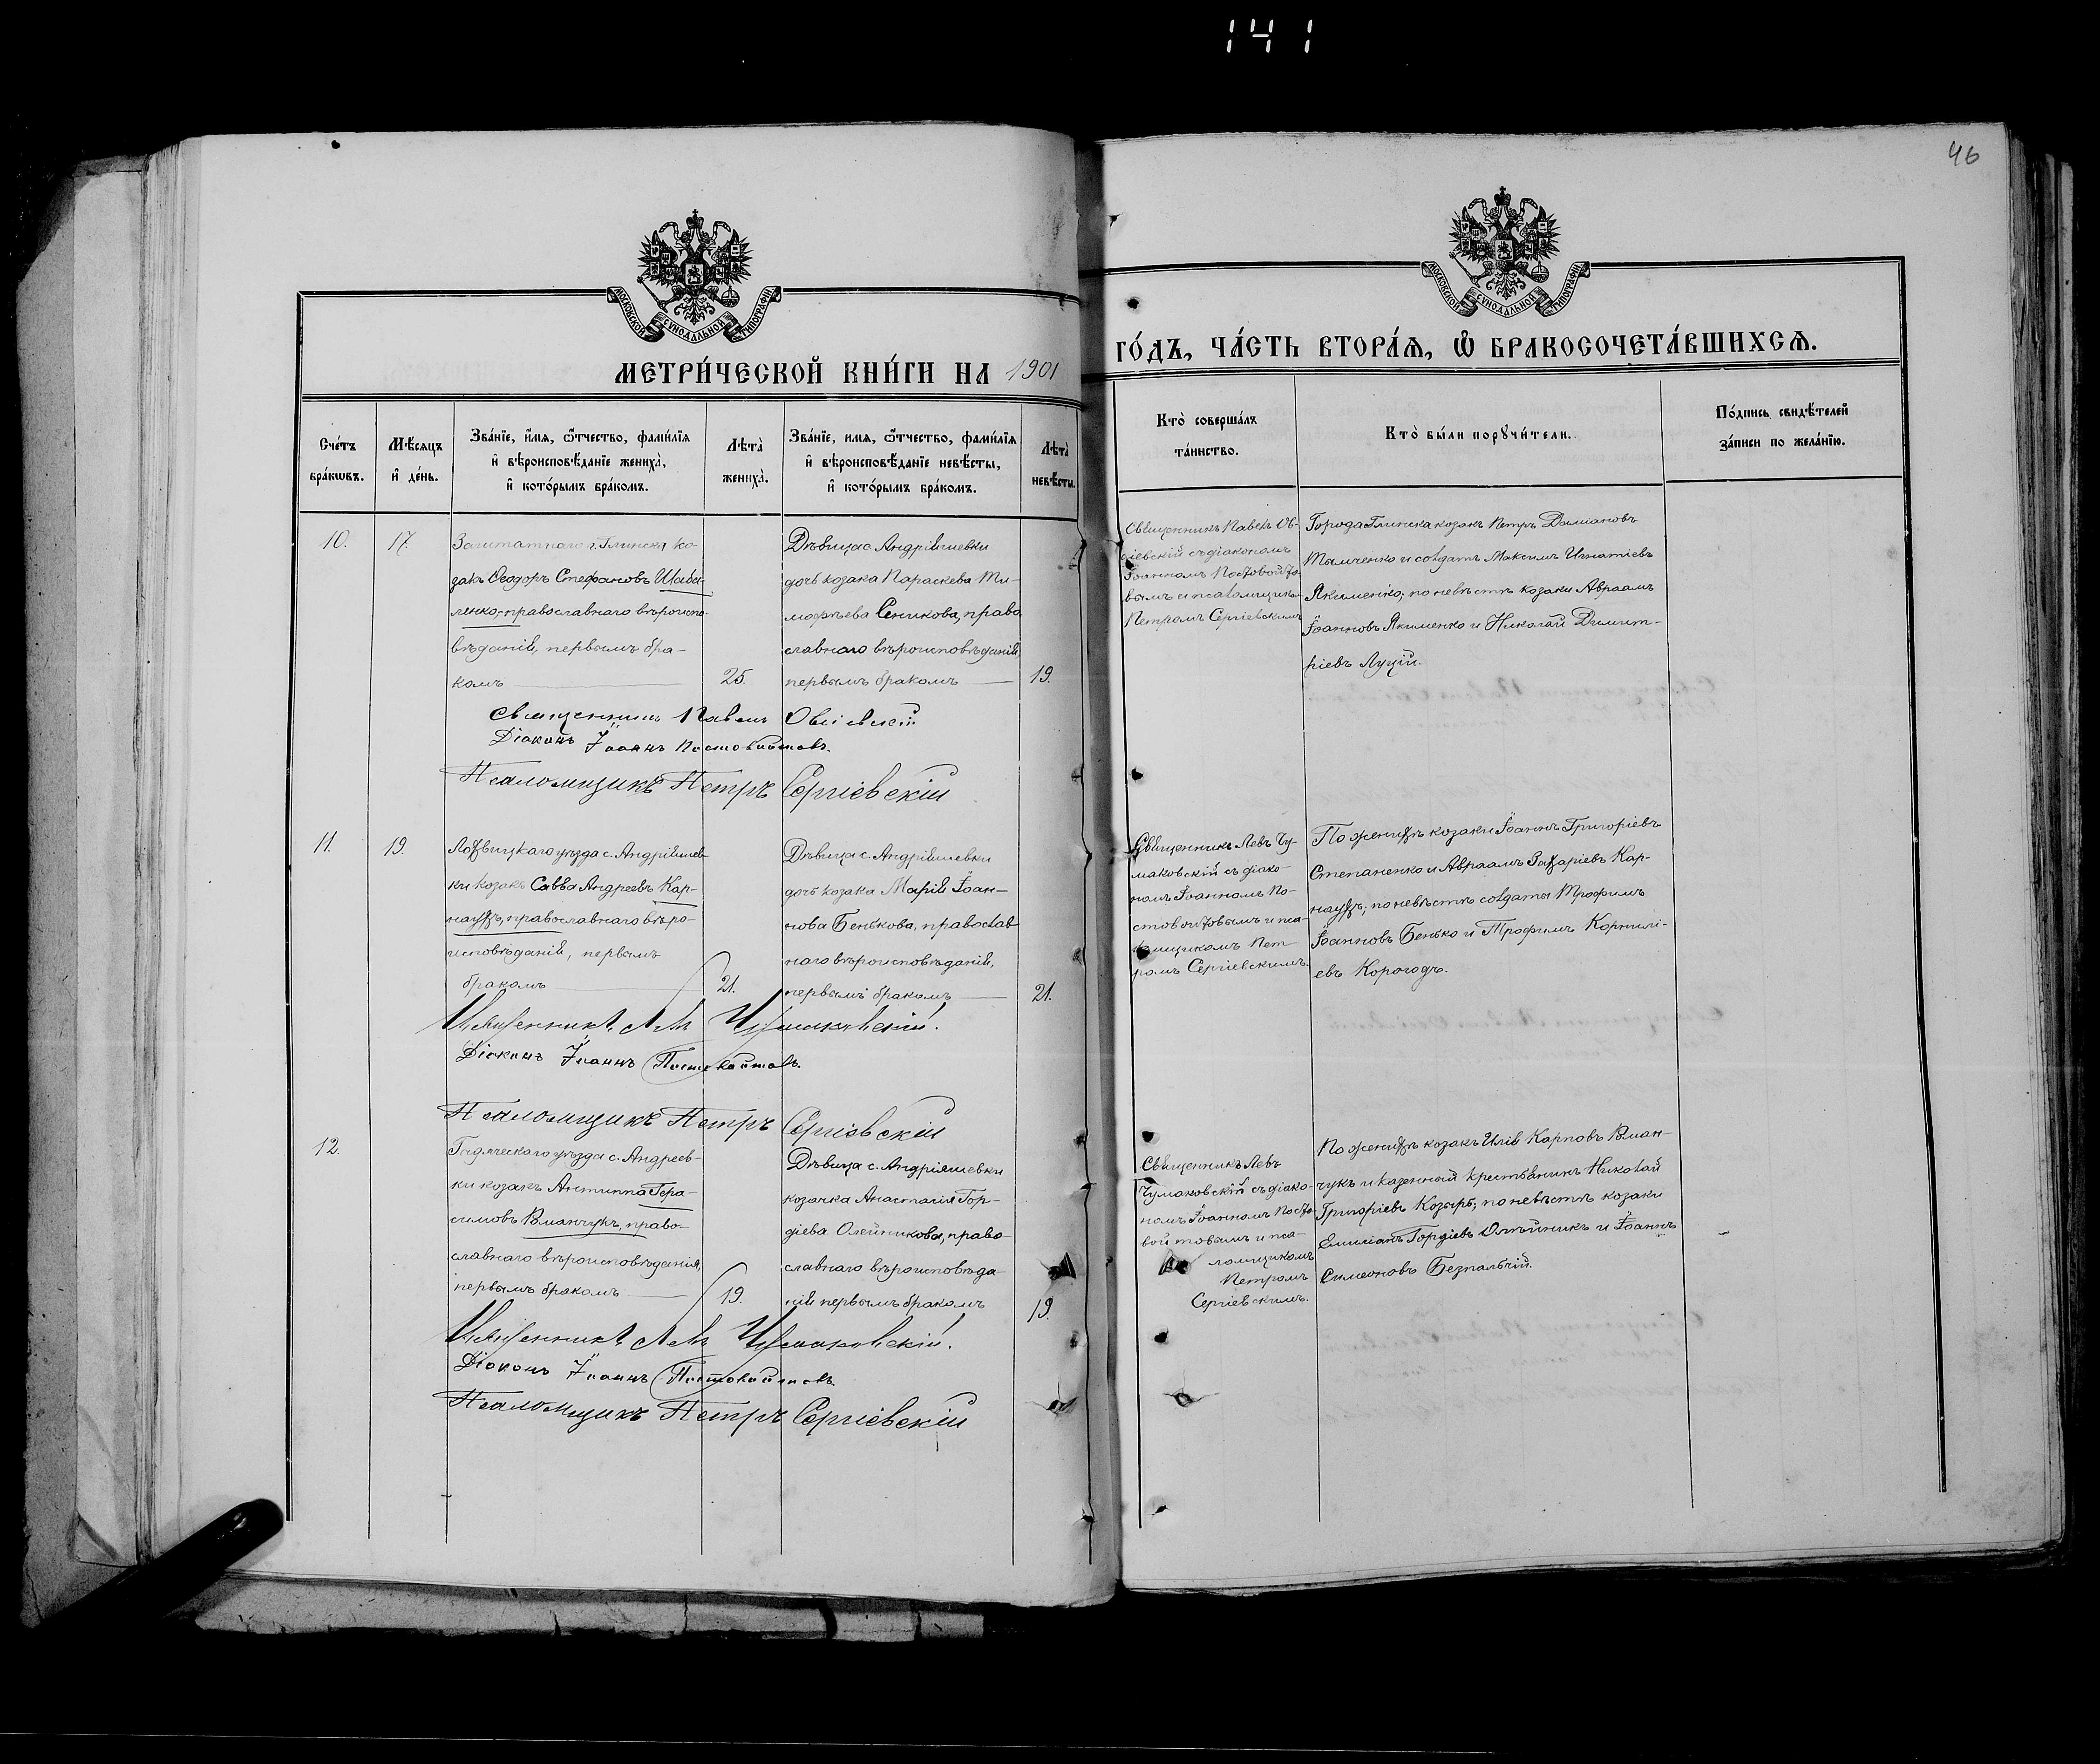 141
46
МОСКОВСКОЙ СУНОДАЛЬНОЙ ТИПОГРАФІИ
МОСКОВСКОЙ СУНОДАЛЬНОЙ ТИПОГРАФІИ
МЕТРИ́ЧЕСКОЙ КНИ́ГИ НА 1901
ГО́ДЪ, ЧА́СТЬ ВТОРА́Ѧ, Ѡ҆ БРАКОСОЧЕТА́ВШИХСѦ.
Сче́тъ
бра́кѡвъ.
Мѣ́сѧцъ
и҆ де́нь.
Зва́нїе, и҆́мѧ, ѻ҆́тчество, фами́лїѧ
и҆ вѣроисповѣ́данїе жениха̀,
и҆ кото́рымъ бра́комъ.
Лѣта̀
жениха̀.
Зва́нїе, имѧ, ѻ҆́тчество, фами́лїѧ
и҆ вѣроисповѣ́данїе невѣ́сты,
и҆ кото́рымъ бра́комъ.
Лѣта̀
невѣ́сты.
Кто̀ соверша́лъ
та́инство.
Кто̀ бы́ли порꙋчи́тели.
По́дпись свидѣ́телей
за́писи по жела́нїю.
10.
17.
Заштатнаго г. Глинска ко-
закъ Ѳеодоръ Стефановъ Шаба-
ленко, православнаго вѣроиспо-
вѣданія, первымъ бра-
комъ
25.
Дѣвица с. Андріяшевки
дочь козака Параскева Ти-
моѳеева Сеникова, право
славнаго вѣроисповѣданія
первымъ бракомъ
19.
Священникъ Павелъ Ов-
сіевскій съ діакономъ
Іоанномъ Постовойто-
вымъ и псаломщикомъ
Петромъ Сергіевскимъ
Города Глинска козакъ Петръ Даміановъ
Тамченко и солдатъ Максимъ Игнатіевъ
Якименко; по невѣстѣ козаки Авраамъ
Іоанновъ Якименко и Николай Димит-
ріевъ Луцій.
Священникъ Павелъ Овсіевскій
Діаконъ Іоаннъ Постовойтовъ.
Псаломщикъ Петръ Сергіевскій
11.
19.
Лохвицкаго уѣзда с. Андріяшев-
ки козакъ Савва Андреевъ Кар-
наухъ, православнаго вѣро-
исповѣданія, первымъ
бракомъ
21.
Дѣвица с. Андріяшевки
дочь козака Марія Іоан-
нова Бенькова, православ
наго вѣроисповѣданія,
первымъ бракомъ
21.
Священникъ Левъ Чу-
маковскій съ діако-
номъ Іоанномъ По-
стовойтовымъ и пса-
ломщикомъ Пет-
ромъ Сергіевскимъ.
По женихѣ козаки Іоаннъ Григоріевъ
Степаненко и Авраамъ Захаріевъ Кар-
наухъ; по невѣстѣ солдаты Трофимъ
Іоанновъ Бенько и Трофимъ Корнилі-
евъ Корогодъ.
Священникъ Левъ Чумаковскій.
Діаконъ Іоаннъ Постовойтовъ.
Псаломщикъ Петръ Сергіевскій
12.
Гадячскаго уѣзда с. Андреев-
ки козакъ Антиппа Гера-
симовъ Иванчукъ, право-
славнаго вѣроисповѣданія,
первымъ бракомъ
19.
Дѣвица с. Андріяшевки
козачка Анастасія Гор-
діева Олейникова, право-
славнаго вѣроисповѣда-
нія первымъ бракомъ
19.
Священникъ Левъ
Чумаковскій съ діако-
номъ Іоанномъ Посто-
войтовымъ и пса-
ломщикомъ
Петромъ
Сергіевскимъ.
По женихѣ козакъ Илія Карповъ Иван-
чукъ и казенный крестьянинъ Николай
Григоріевъ Козырь; по невѣстѣ козаки
Емиліанъ Гордіевъ Олѣйникъ и Іоаннъ
Симеоновъ Безпалъчій.
Священникъ Левъ Чумаковскій.
Діаконъ Іоаннъ Постовойтовъ
Псаломщикъ Петръ Сергіевскій